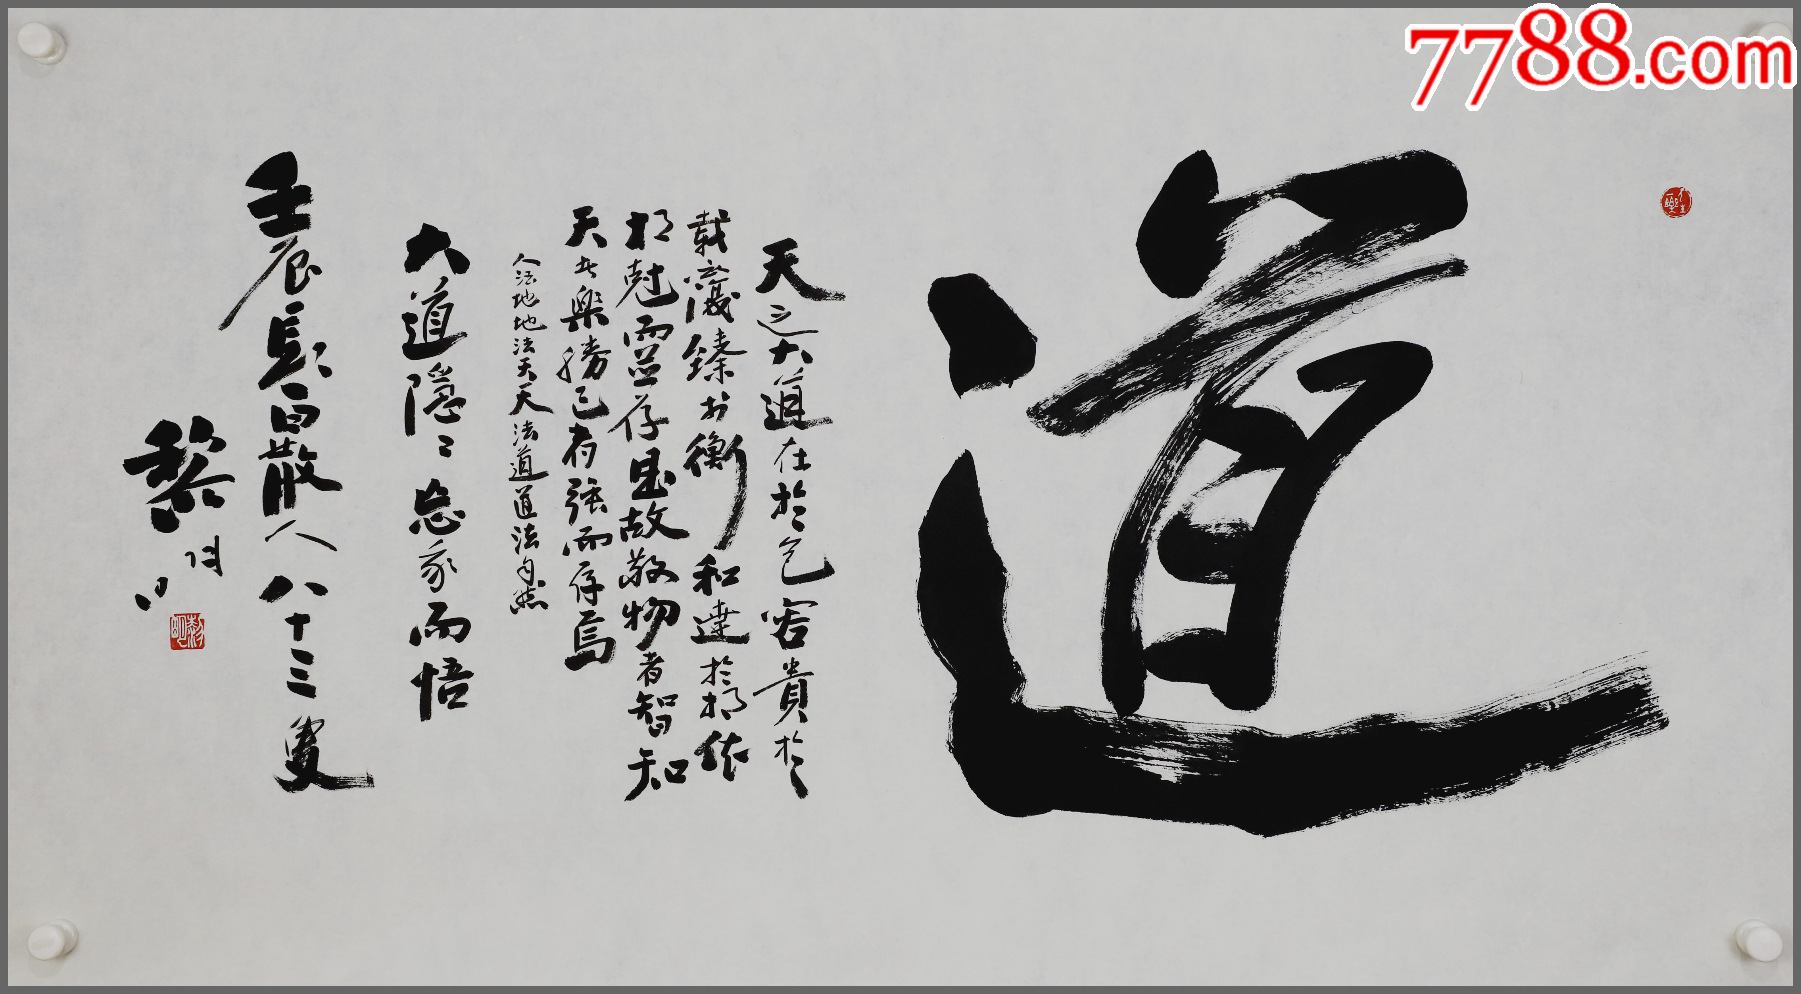 7788.com
道
天之大道在於包容貴於
載
臻於衡和達於相依
相尅而並存是故敬物者智知
天者樂勝己者強而存焉
人法地地法天天法道道法自然
大道隱隱忘象而悟
壬辰長白散人八十三叟
黎